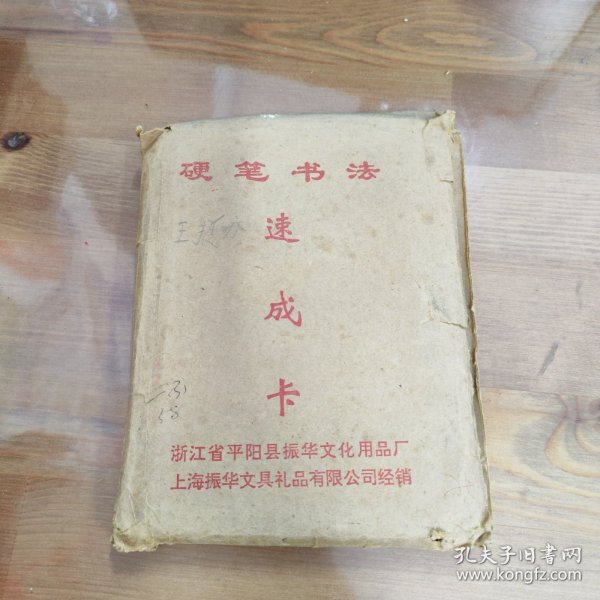 硬笔书法
速
成
卡
浙江省平阳县振华文化用品厂
上海振华文具礼品有限公司经销
孔夫子旧书网
www.kongfz.com